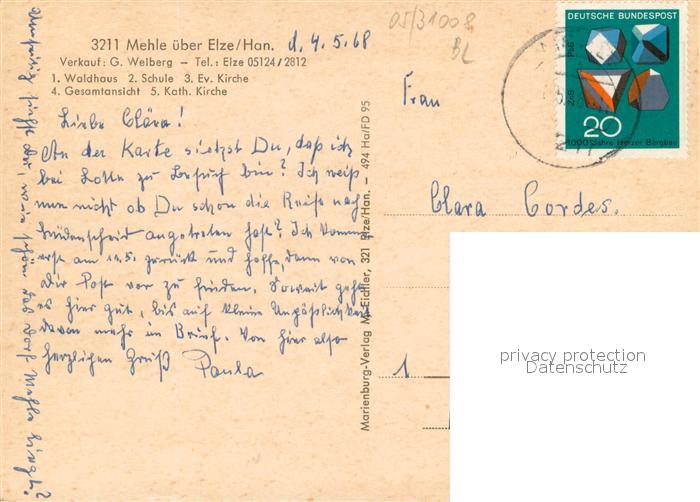 3211 Mehle über Elze/Han. d. 4.5.68
Verkauf: G. Welberg – Tel.: Elze 05124/2812
1. Waldhaus 2. Schule 3. Ev. Kirche
4. Gesamtansicht 5. Kath. Kirche
Liebe Clära!
An der Karte siehst Du, daß ich
bei Lotte zu Besuch bin? Ich weiß
nun nicht ob Du schon die Reise nach
Lüdenscheid angetreten hast? Ich komme
erst am 11.5. zurück und hoffe, dann von
Dir Post vor zu finden. Soweit geht
es hier gut, bis auf kleine Unpäßlichkeit
davon mehr im Brief. Von hier also
herzlichen Gruß Paula
siehst Du, wie schön das Dorf Mehle liegt?
Marienburg-Verlag M. Eidtler, 321 Elze/Han. – 494 Ha/FD 95
05/31008
BL
DEUTSCHE BUNDESPOST
20
1000 Jahre Harzer Bergbau
Frau
Clara Cordes.
1
privacy protection
Datenschutz